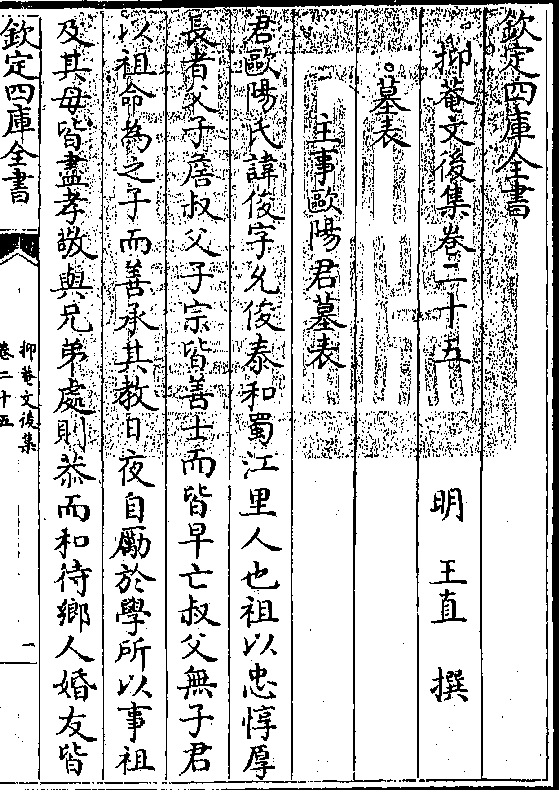 欽定四庫全書
抑菴文後集卷二十五
明 王直 撰
墓表
主事歐陽君墓表
君歐陽氏諱俊字允俊泰和蜀江里人也祖以忠惇厚
長者父子詹叔父子宗皆善士而皆早亡叔父無子君
以祖命為之子而善承其教日夜自勵於學所以事祖
及其母皆盡孝敬與兄弟處則恭而和待鄉人婚友皆
欽定四庫全書
抑菴文後集
卷二十五
一